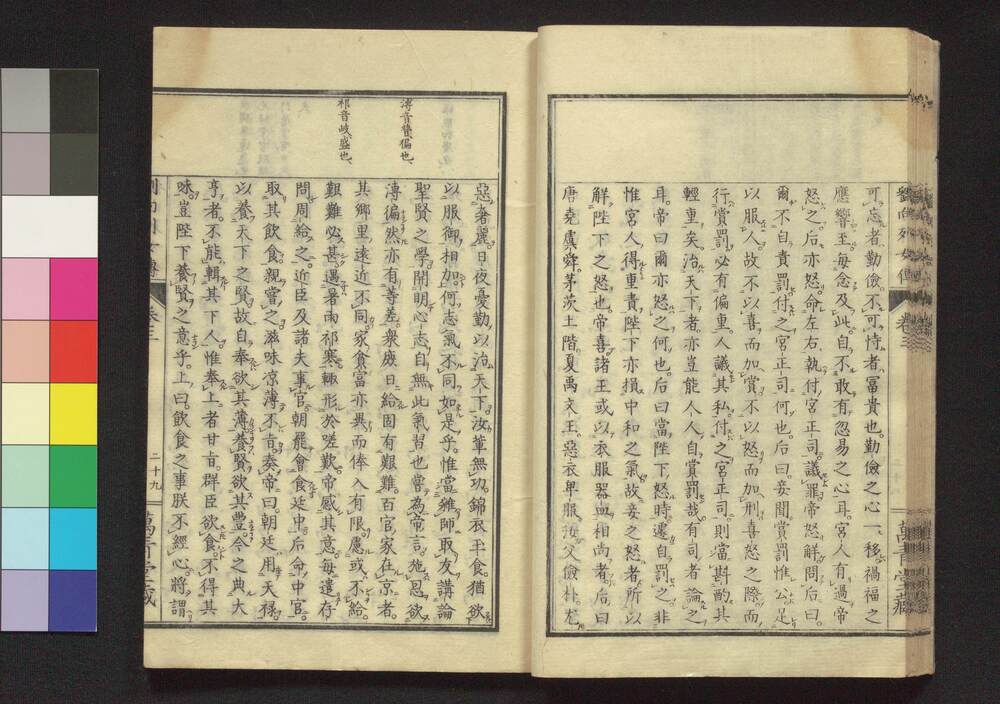 可忘者勤儉不可恃者富貴也勤儉之心一移禍福之
應響至每念及此自不敢有忽易之心耳宮人有過帝
怒之后亦怒命左右執付宮正司議罪帝怒解問后曰
爾不自責罰付之宮正司何也后曰妾聞賞罰惟公足
以服人故不以喜而加賞不以怒而加刑喜怒之際而
行賞罰必有偏重人議其私付之宮正司則當斟酌其
輕重矣治天下者亦豈能人人自賞罰哉有司者論之
耳帝曰爾亦怒之何也后曰當陛下怒時遽自罰之非
惟宮人得重責陛下亦損中和之氣故妾之怒者所以
解陛下之怒也帝喜諸王或以衣服器皿相尚者后曰
唐堯虞舜茅茨土階夏禹文王惡衣卑服汝父儉朴尤
惡奢麗日夜憂勤以治天下汝輩無功錦衣平食猶欲
以服御相加何志氣不同如是乎惟當雞師取友講論
聖賢之學開明心志自無此氣習也嘗為帝言施恩欲
溥徧然亦有等差衆庶日給固有艱難百官家在京者
其鄉里遠近不同家貧富亦異而俸入有限慮或不給
艱難必甚遇暑雨祁寒輒形於嗟歎帝感其意每遣存
問周給之近臣及諸夫事官朝罷會食廷中后命中官
取其飲食親嘗之滋味凉薄不旨奏帝曰朝廷用天祿
以養天下之賢故自奉欲其薄養賢欲其豐今之典大
亨者不能輯其下人惟奉上者甘旨群臣欲食不得其
味豈陛下養賢之意乎上曰飲食之事朕不經心將謂
溥音普徧也
祁音岐盛也
卷三
二十九
劉向列女傳
卷三
萬青堂藏